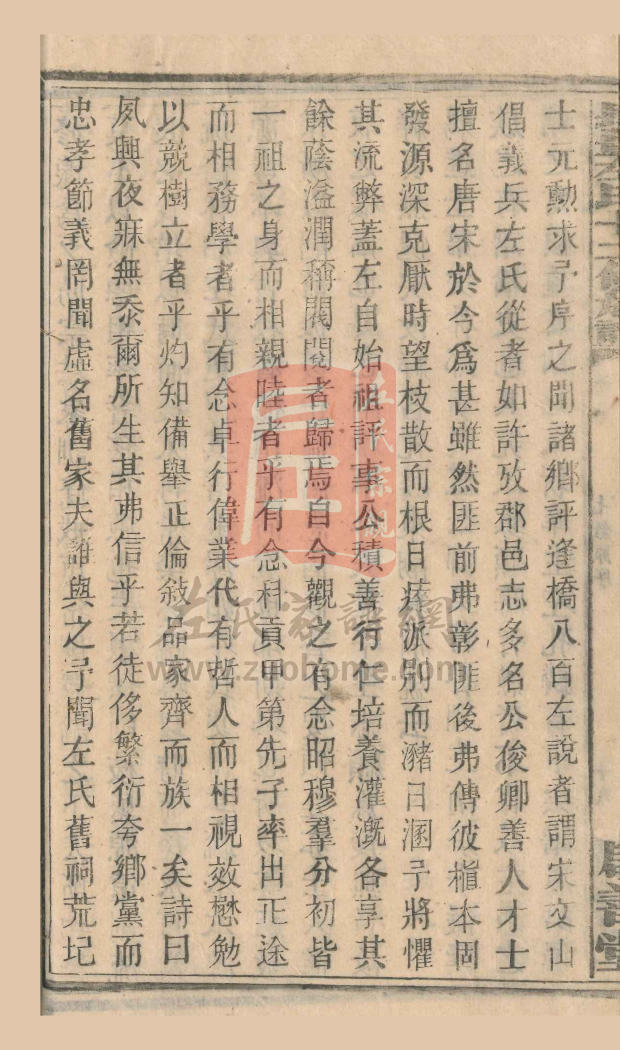 士元勲求予序之聞諸鄉評逢橋八百左說者謂宋文山
倡義兵左氏從者如許攷郡邑志多名公俊卿善人才士
擅名唐宋於今爲甚雖然匪前弗彰匪後弗傳彼植本固
發源深克厭時望枝散而根日瘁派別而瀦日溷予將懼
其流弊蓋左自始祖評事公積善行仁培養灌漑各享其
餘蔭溢潤稱閥閱者歸焉自今觀之有念昭穆羣分初皆
一祖之身而相親睦者乎有念科貢甲第先子率出正途
而相務學者乎有念卓行偉業代有哲人而相視效懋勉
以競樹立者乎灼知備舉正倫敍品家齊而族一矣詩曰
夙興夜寐無忝爾所生其弗信乎若徒侈繁衍夸鄉黨而
忠孝節義罔聞虛名舊家夫誰與之予聞左氏舊祠荒圮
善堂
左氏宗親
左氏家譜網
www.zuohome.com